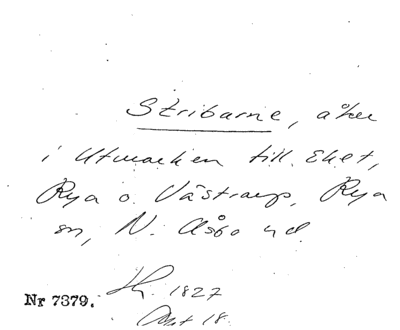 Stribarne, åker
i Utmarken till Eket,
Rya o. Västraup, Rya
sn, N. Åsbo hd.
1827
Akt 18.
Nr 7379.